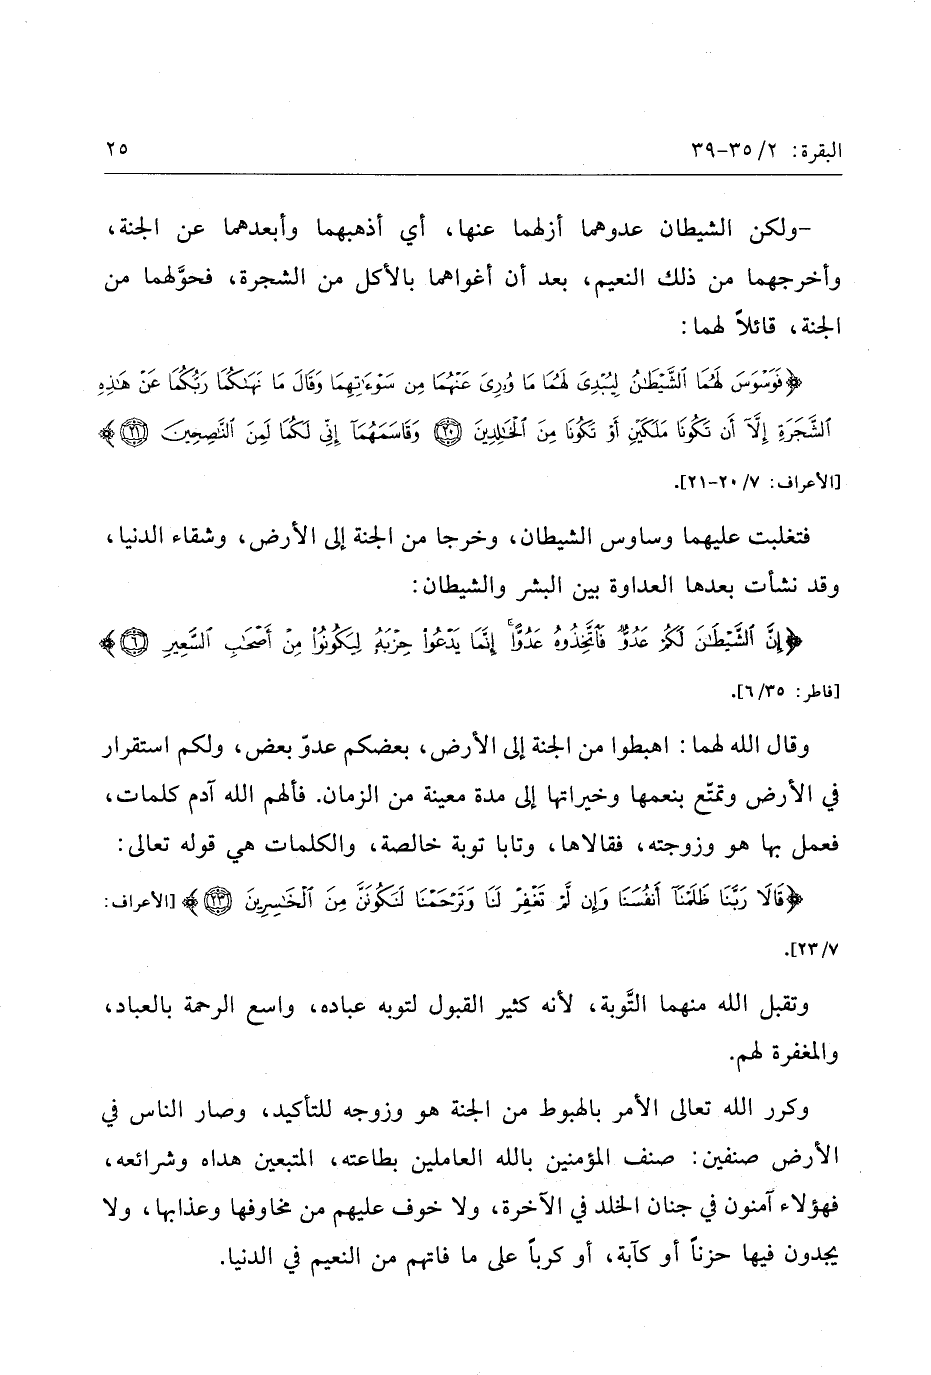 البقرة: ٢/ ٣٥-٣٩ ٢٥
-ولكن الشيطان عدوهما أزلهما عنها، أي أذهبهما وأبعدهما عن الجنة،
وأخرجهما من ذلك النعيم، بعد أن أغواهما بالأكل من الشجرة، فحوَّلهما من
الجنة، قائلاً لهما:
﴿فَوَسْوَسَ لَهُمَا ٱلشَّيْطَٰنُ لِيُبْدِىَ لَهُمَا مَا وُۥرِىَ عَنْهُمَا مِن سَوْءَٰتِهِمَا وَقَالَ مَا نَهَىٰكُمَا رَبُّكُمَا عَنْ هَٰذِهِ
ٱلشَّجَرَةِ إِلَّآ أَن تَكُونَا مَلَكَيْنِ أَوْ تَكُونَا مِنَ ٱلْخَٰلِدِينَ ﴿٢٠﴾ وَقَاسَمَهُمَآ إِنِّى لَكُمَا لَمِنَ ٱلنَّٰصِحِينَ ﴿٢١﴾﴾
[الأعراف: ٧/ ٢٠-٢١].
فتغلبت عليهما وساوس الشيطان، وخرجا من الجنة إلى الأرض، وشقاء الدنيا،
وقد نشأت بعدها العداوة بين البشر والشيطان:
﴿إِنَّ ٱلشَّيْطَٰنَ لَكُمْ عَدُوٌّ فَٱتَّخِذُوهُ عَدُوًّا ۚ إِنَّمَا يَدْعُوا۟ حِزْبَهُۥ لِيَكُونُوا۟ مِنْ أَصْحَٰبِ ٱلسَّعِيرِ ﴿٦﴾﴾
[فاطر: ٦/٣٥].
وقال الله لهما: اهبطوا من الجنة إلى الأرض، بعضكم عدوّ بعض، ولكم استقرار
في الأرض وتمتّع بنعمها وخيراتها إلى مدة معينة من الزمان. فألهم الله آدم كلمات،
فعمل بها هو وزوجته، فقالاها، وتابا توبة خالصة، والكلمات هي قوله تعالى:
﴿قَالَا رَبَّنَا ظَلَمْنَآ أَنفُسَنَا وَإِن لَّمْ تَغْفِرْ لَنَا وَتَرْحَمْنَا لَنَكُونَنَّ مِنَ ٱلْخَٰسِرِينَ ﴿٢٣﴾﴾ [الأعراف:
٢٣/٧].
وتقبل الله منهما التَّوبة، لأنه كثير القبول لتوبه عباده، واسع الرحمة بالعباد،
والمغفرة لهم.
وكرر الله تعالى الأمر بالهبوط من الجنة هو وزوجه للتأكيد، وصار الناس في
الأرض صنفين: صنف المؤمنين بالله العاملين بطاعته، المتبعين هداه وشرائعه،
فهؤلاء آمنون في جنان الخلد في الآخرة، ولا خوف عليهم من مخاوفها وعذابها، ولا
يجدون فيها حزناً أو كآبة، أو كرباً على ما فاتهم من النعيم في الدنيا.